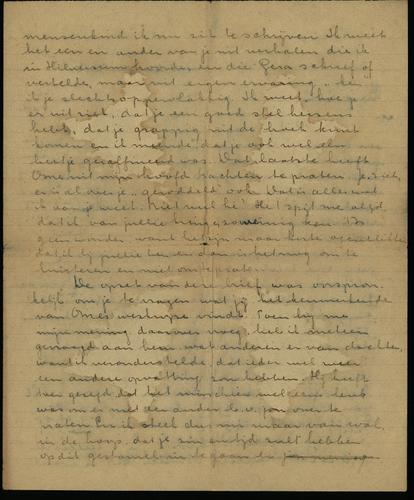 mensenkind ik nu zit te schrijven. Ik weet
het een en ander van je uit verhalen die ik
in Hilversum hoorde, en die Gera schreef of
vertelde, maar uit eigen ervaring ken
ik je slechts oppervlakkig. Ik weet, hoe je
er uit ziet, dat je een goed stel hersens
hebt, dat je grappig uit de hoek kunt
komen en ik meende dat je ook wel een
beetje geraffineerd was. Dat laatste heeft
Oms uit mijn hoofd trachten te praten. Je ziet,
er is al over je "geroddeld" ook. Dat is alles wat
ik van je weet. Niet veel hè! Het spijt me altijd
dat ik van jullie kring zo weinig ken. Zo
geen worden, want het zijn maar korte ogenblikken
dat ik bij jullie ben en dan is het nog om te
luisteren en niet om te praten.
De opzet van deze brief was oorspron-
kelijk om je te vragen wat jij het kenmerkende
van Omes werkwijze vindt. Toen hij me
mijn mening daarover vroeg, heb ik meteen
gevraagd aan hem, wat anderen er van dachten,
want ik veronderstelde, dat ieder wel weer
een andere opvatting zou hebben. Hij heeft
toen gezegd, dat het misschien wel eens leuk
was om er met den ander b.v. jou over te
praten. En ik steek dus nu maar van wal,
in de hoop, dat je zin en tijd zult hebben
op dit gestamel in te gaan en